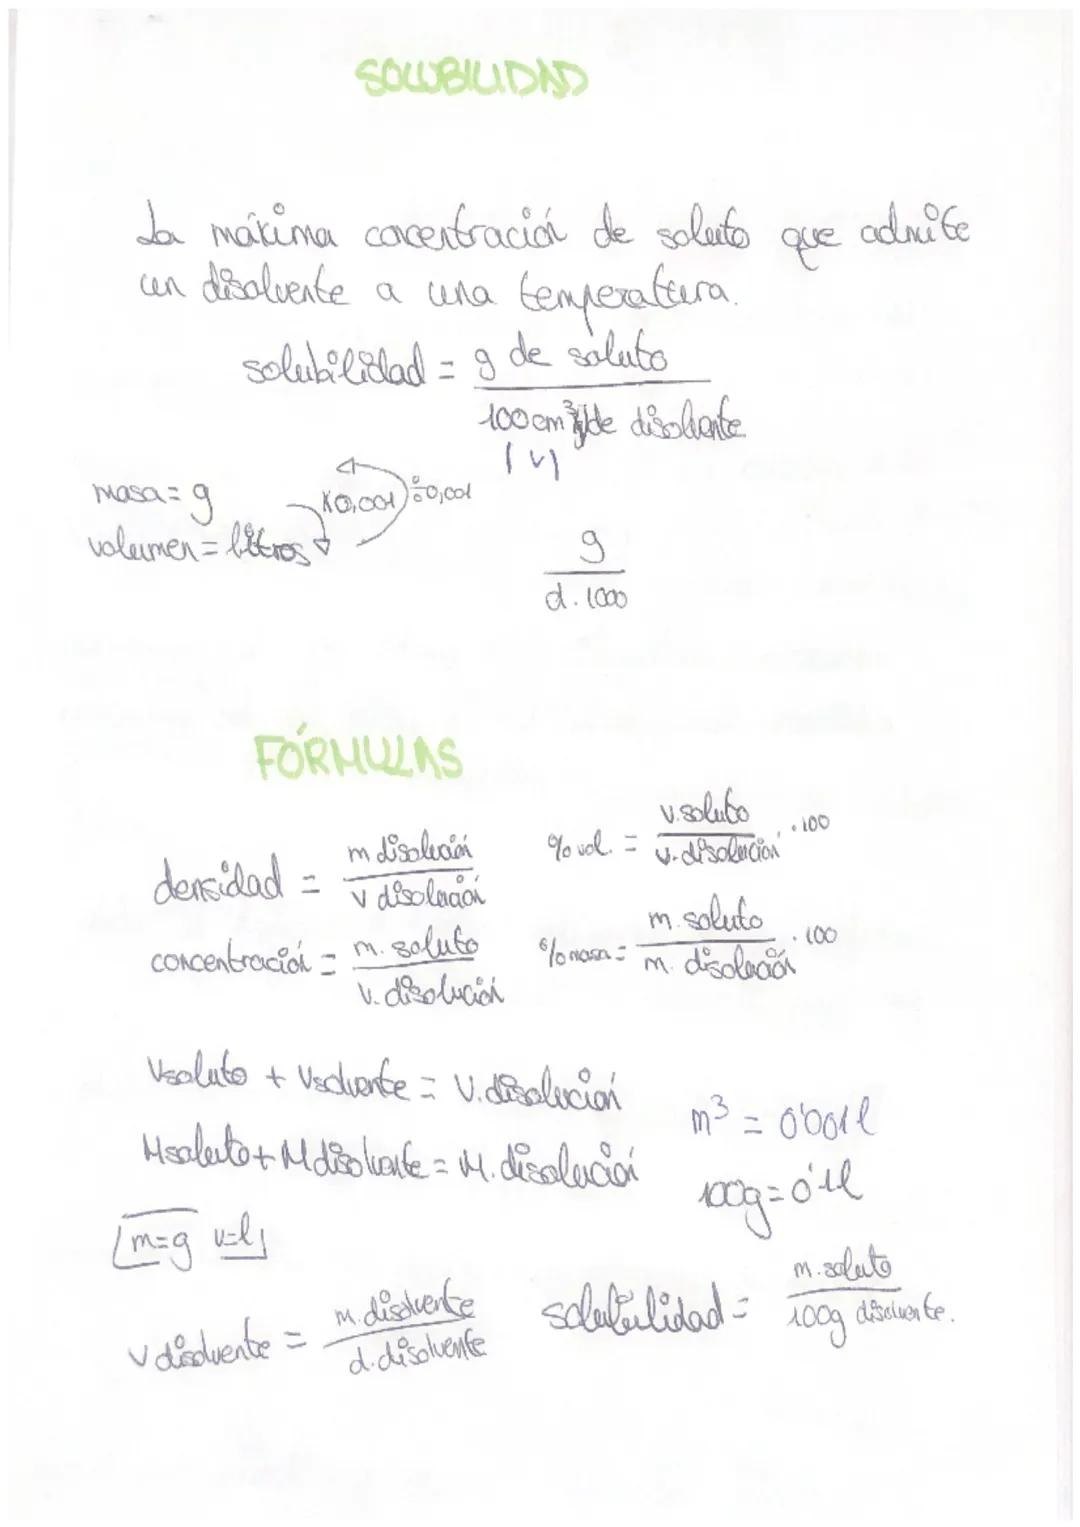 SOLUBILIDAD
La máxima concentración de soluto que admite
un disolvente a una temperatura.
solubilidad = g de soluto
100 cm³ de disolvente
(v)
masa = g
x0,001 ÷0,001
volumen = litros
g
d. 1000
FÓRMULAS
densidad = m disolución
v disolución
% vol. = v. soluto . 100
v. disolución
concentración = m. soluto
v. disolución
% masa = m. soluto . 100
m. disolución
Vsoluto + Vsolvente = V. disolución
m³ = 0'001 l
Msoluto + Mdisolvente = M. disolución
100g = 0'1l
m=g v=l
v disolvente = m. disolvente
d. disolvente
solubilidad = m. soluto
100g disolvente.